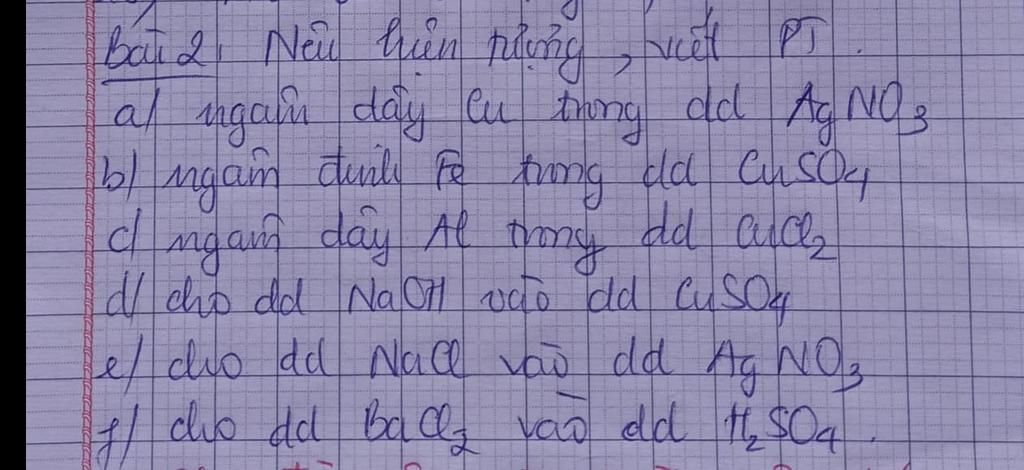 Bài 2, Nêu hiện tượng, viết PT.
a) ngâm dây Cu trong dd AgNO3
b) ngâm đinh Fe trong dd CuSO4
c) ngâm dây Al trong dd CuCl2
d) cho dd NaOH vào dd CuSO4
e) cho dd NaCl vào dd AgNO3
f) cho dd BaCl2 vào dd H2SO4.